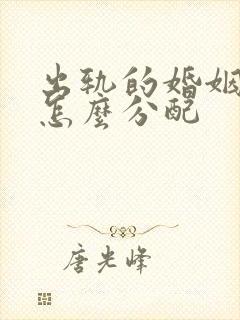 出轨的婚姻
怎麼分配
唐光峰